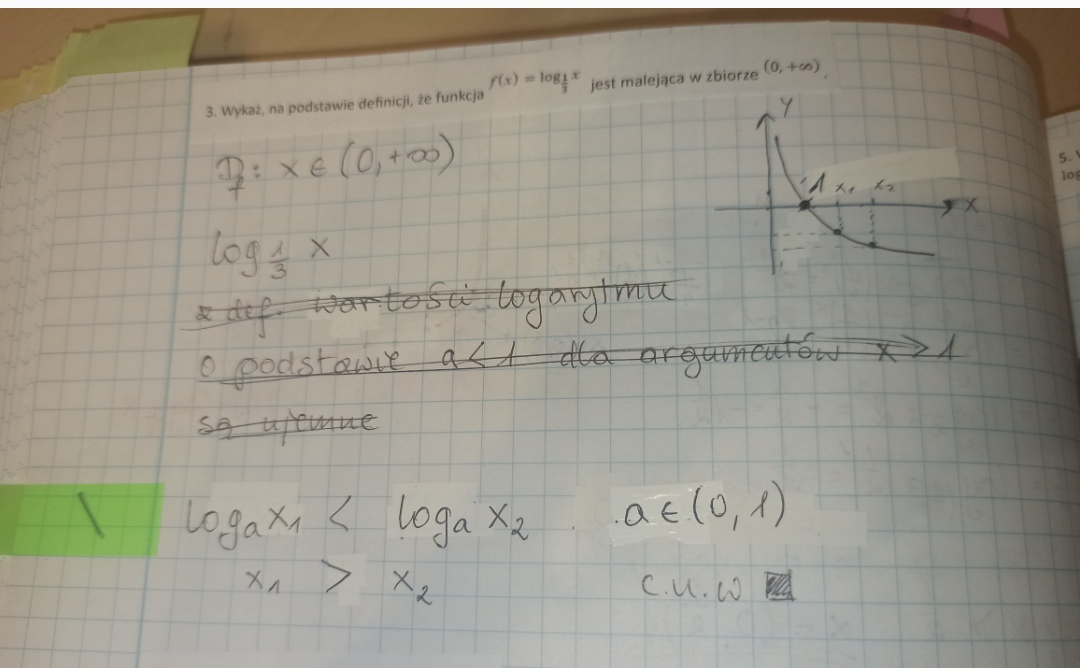 3. Wykaż, na podstawie definicji, że funkcja f(x) = log_{1/3} x jest malejąca w zbiorze (0, +∞).
D_f: x ∈ (0, +∞)
y
1 x₁ x₂
x
log_{1/3} x
z def. wartości logarytmu
o podstawie a < 1 dla argumentów x > 1
są ujemne
\ log_a x₁ < log_a x₂ a ∈ (0, 1)
x₁ > x₂ c.u.w
5.
log